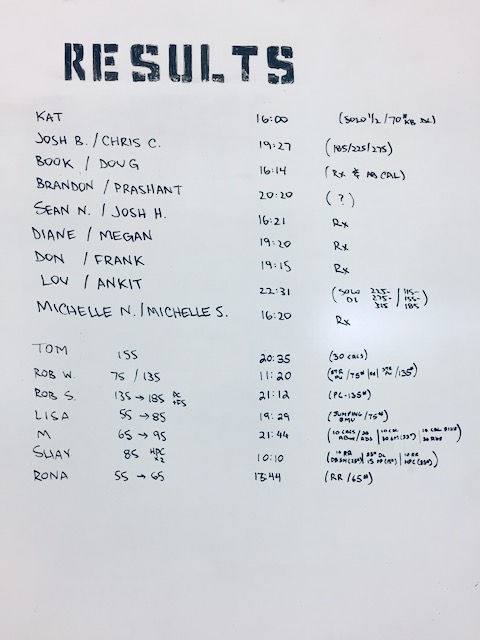 RESULTS
KAT 16:00 (SOLO 1/2 / 70# KB DL)
JOSH B. / CHRIS C. 19:27 (185/225/275)
BOOK / DOUG 16:14 (Rx & AB CAL)
BRANDON / PRASHANT 20:20 (?)
SEAN N. / JOSH H. 16:21 Rx
DIANE / MEGAN 19:20 Rx
DON / FRANK 19:15 Rx
LOU / ANKIT 22:31 (SOLO DL 225- 275- 315 / 115- 155- 185)
MICHELLE N. / MICHELLE S. 16:20 Rx
TOM 155 20:35 (30 CALS)
ROB W. 75 / 135 11:20 /75# /135#)
ROB S. 135 → 185 PC 21:12 (PC-135#)
LISA 55 → 85 19:29 (JUMPING BMU /75#)
M 65 → 95 21:44 (10 CALS
SHAY 85 HPC x2 10:10
RONA 55 → 65 13:44 (RR /65#)